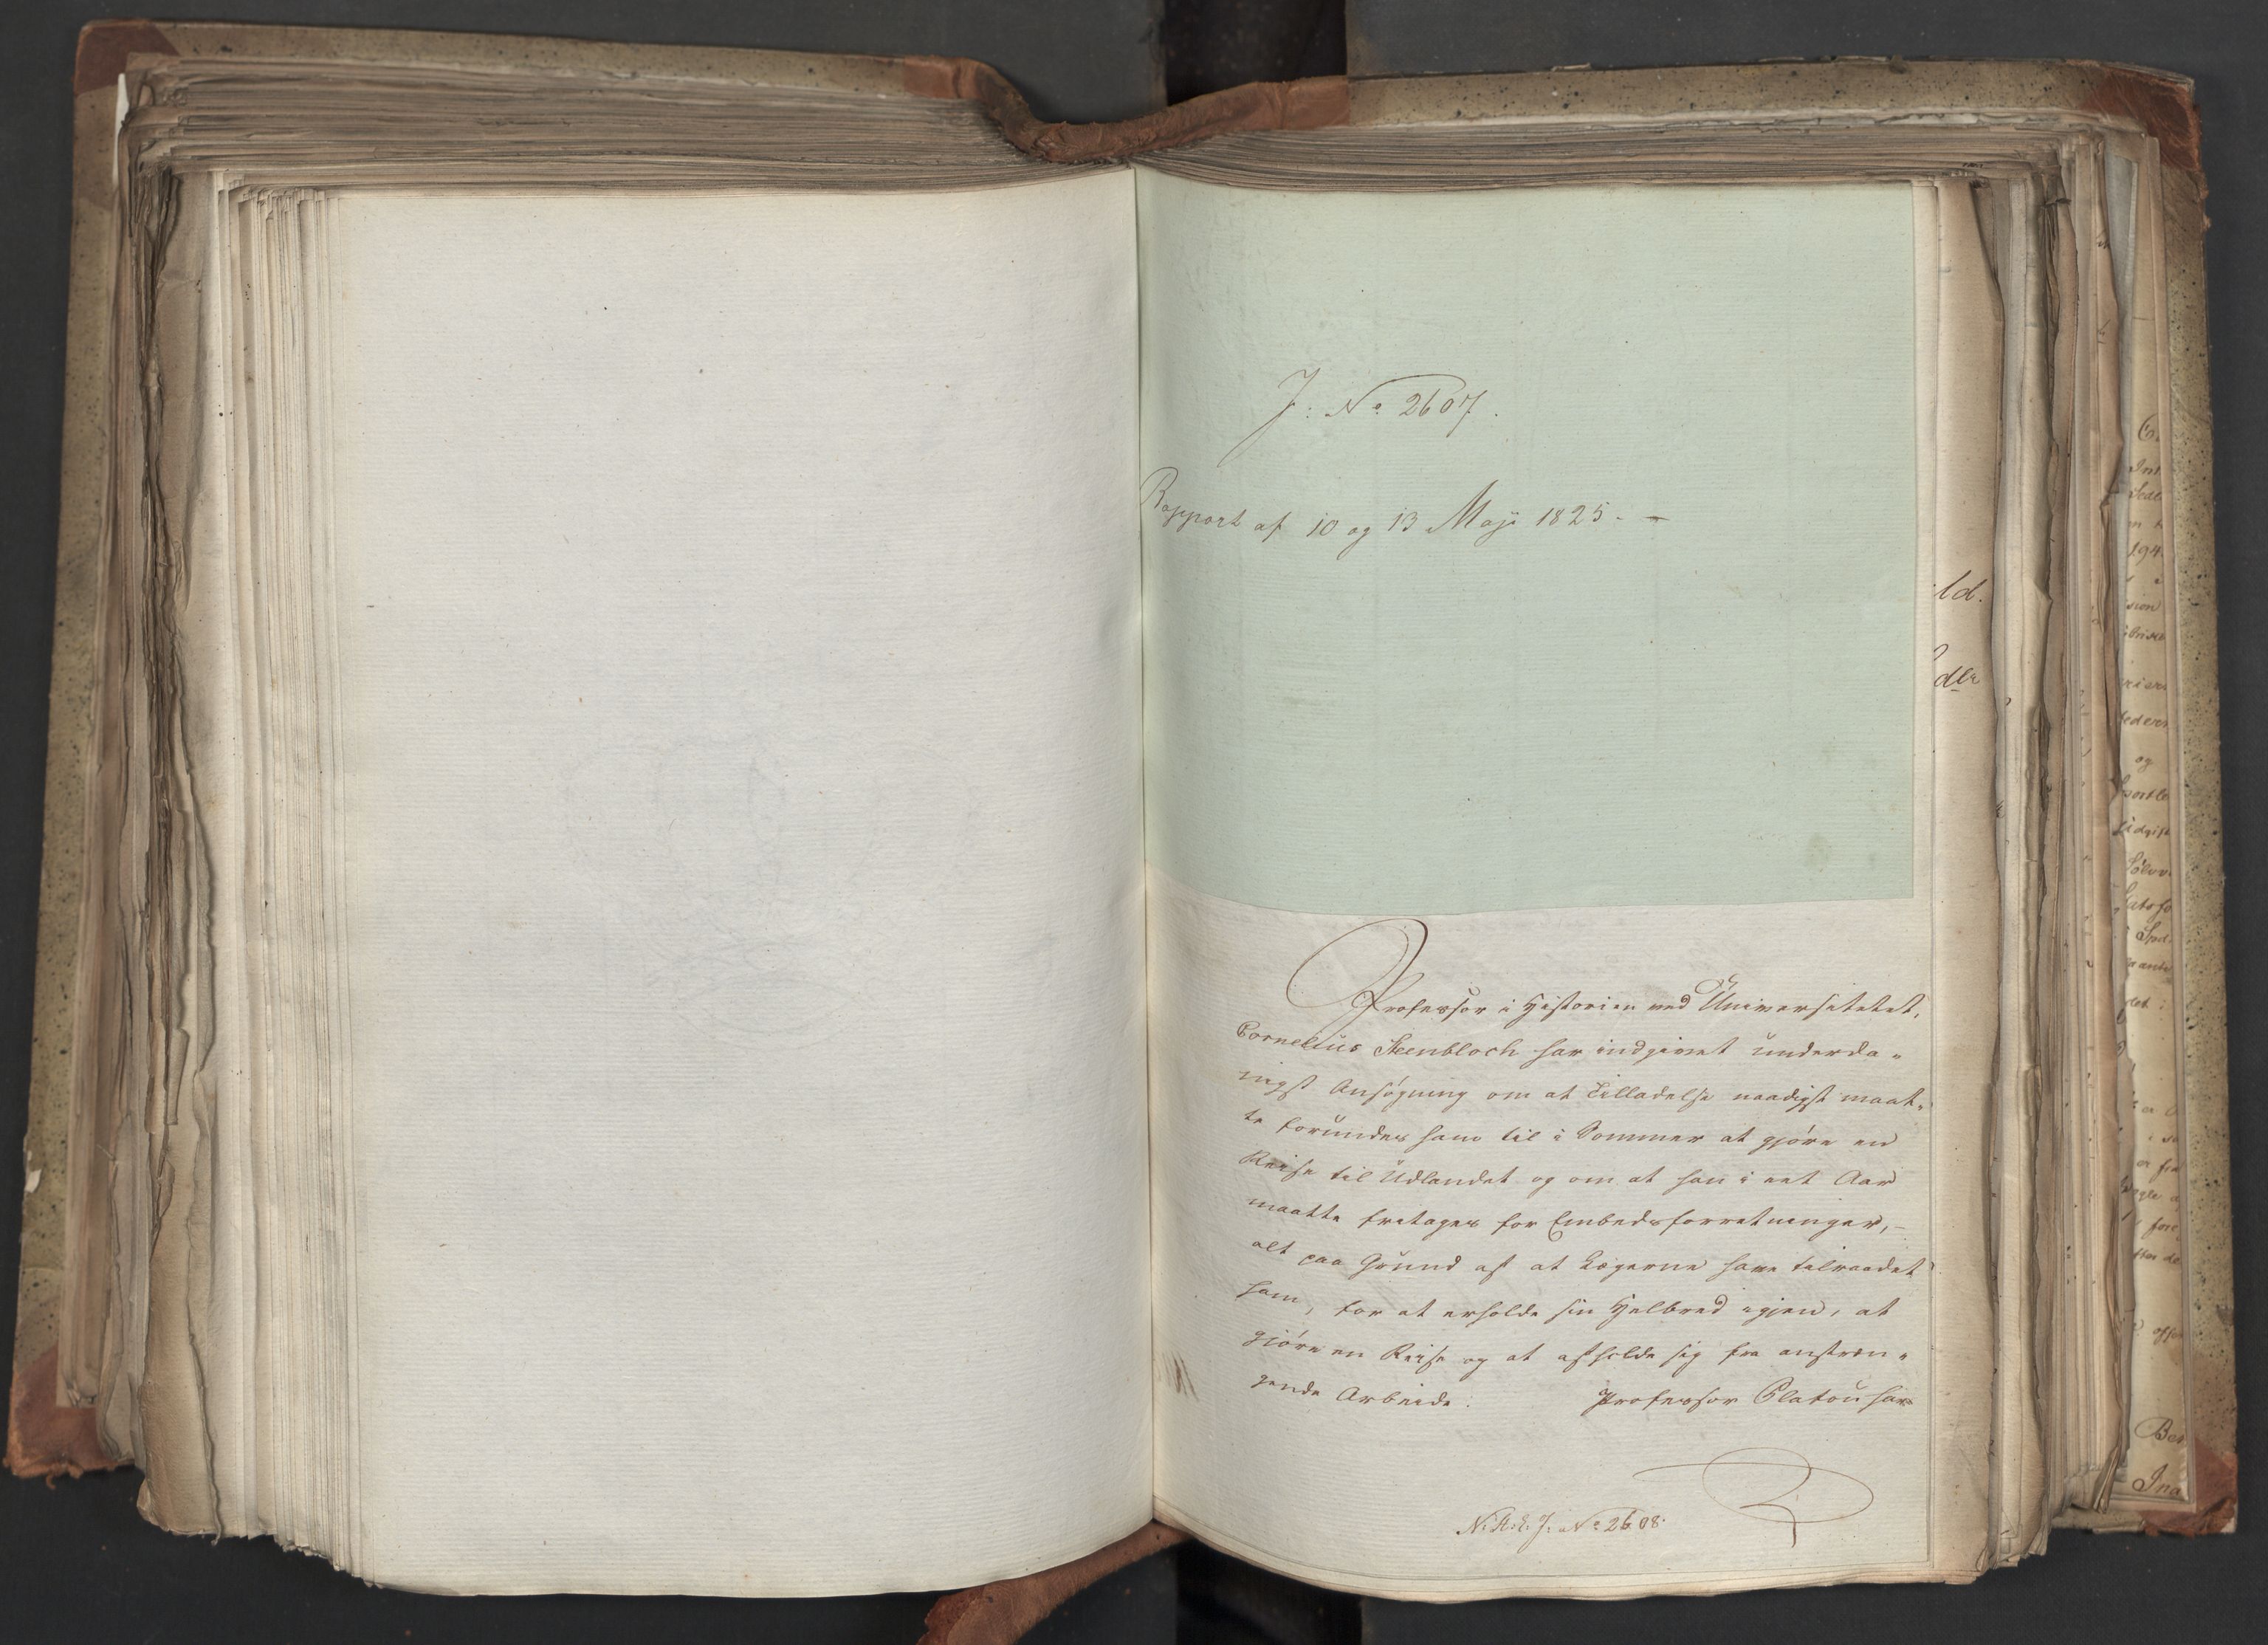 J: No 2607.
Rapport af 10 og 13 Maji 1825. -
Professor i Historien ved Universitetet,
Cornelius Steenbloch har indgivet underda-
nigst Ansøgning om at Tilladelse naadigst maat-
te forundes ham til i Sommer at gjøre en
Reise til Udlandet og om at han i eet Aar
maatte fritages for Embedsforretninger, -
alt paa Grund af at Lægerne have tilraadet
ham, for at erholde sin Helbred igjen, at
gjøre en Reise og at afholde sig fra anstræn-
gende Arbeide. Professor Platou har
N. R. E. J: No 2608.
ld.
dle